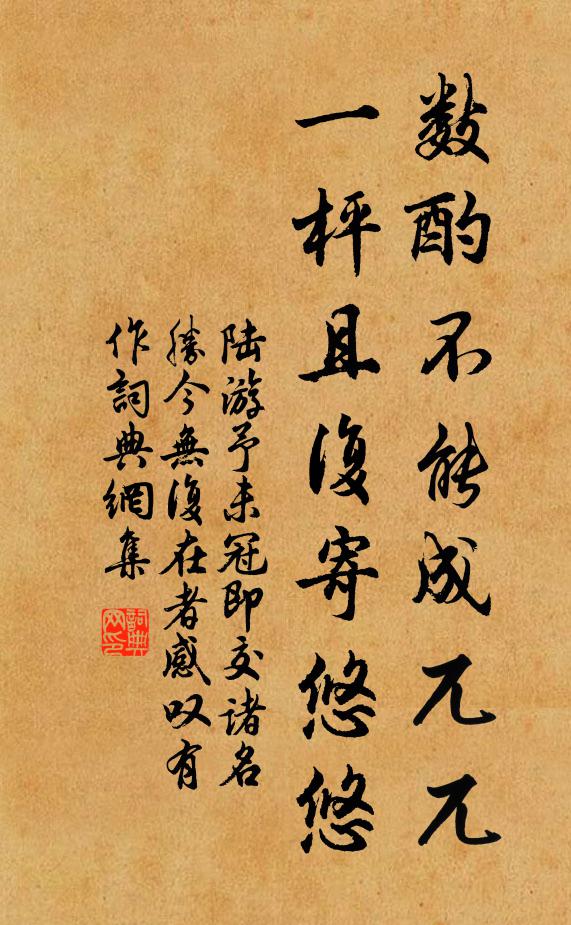 數酌不能成兀兀
一枰且復寄悠悠
陆游予未冠即交諸名
勝今無復在者感叹有
作詞典網集
詞典网印